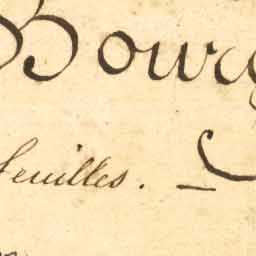 Bourg
feuilles. —